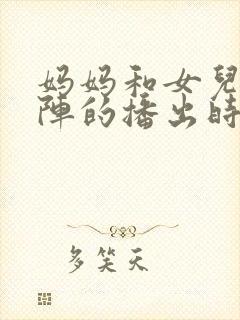 妈妈和女兒
陣的播出時
多笑天